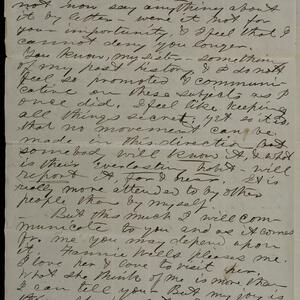 not now say anything about
it by letter - were it not for
your importunity, I feel that I
cannot deny you longer.
You know, my sister - something
of my past history. I do not
feel so promoted I communi-
cative on these subjects as I
once did. I feel like keeping
all things secret; yet so it is
that no movement can be
made in this direction but
somebody will know it, & what
is their everlasting will
report it, It is
really more attended to by other
people than by myself.
- But this much I will com-
municate to you and as it comes
for me you may depend upon
it. Fannie Wells pleases me.
I love her & love to visit her.
What she thinks of me is more than
I can tell you. But, my